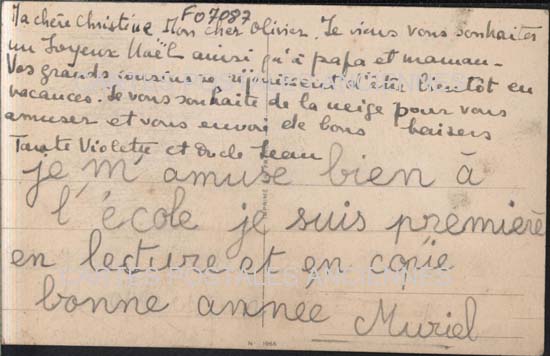 FO7087
Ma chère Christine Mon cher Olivier. Je viens vous souhaiter
un Joyeux Noël ainsi qu'à papa et maman -
Vos grands cousins se réjouissent d'être bientôt en
vacances. Je vous souhaite de la neige pour vous
amuser et vous envoie de bons baisers
Tante Violette et Oncle Jean
je m'amuse bien à
l'école je suis première
en lecture et en copie
bonne année Muriel
CARTES POSTALES ANCIENNES
N° 1966